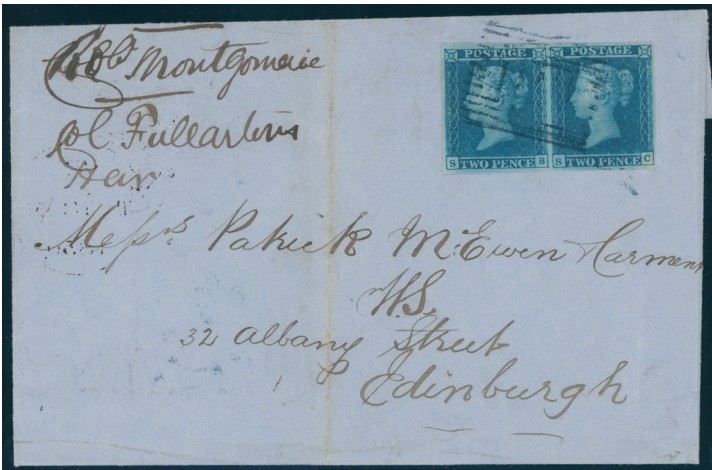 Robt Montgomerie
Fullarton
POSTAGE POSTAGE
S TWO PENCE B S TWO PENCE C
Messrs Patrick McEwen Carment
W.S.
32 Albany Street
Edinburgh